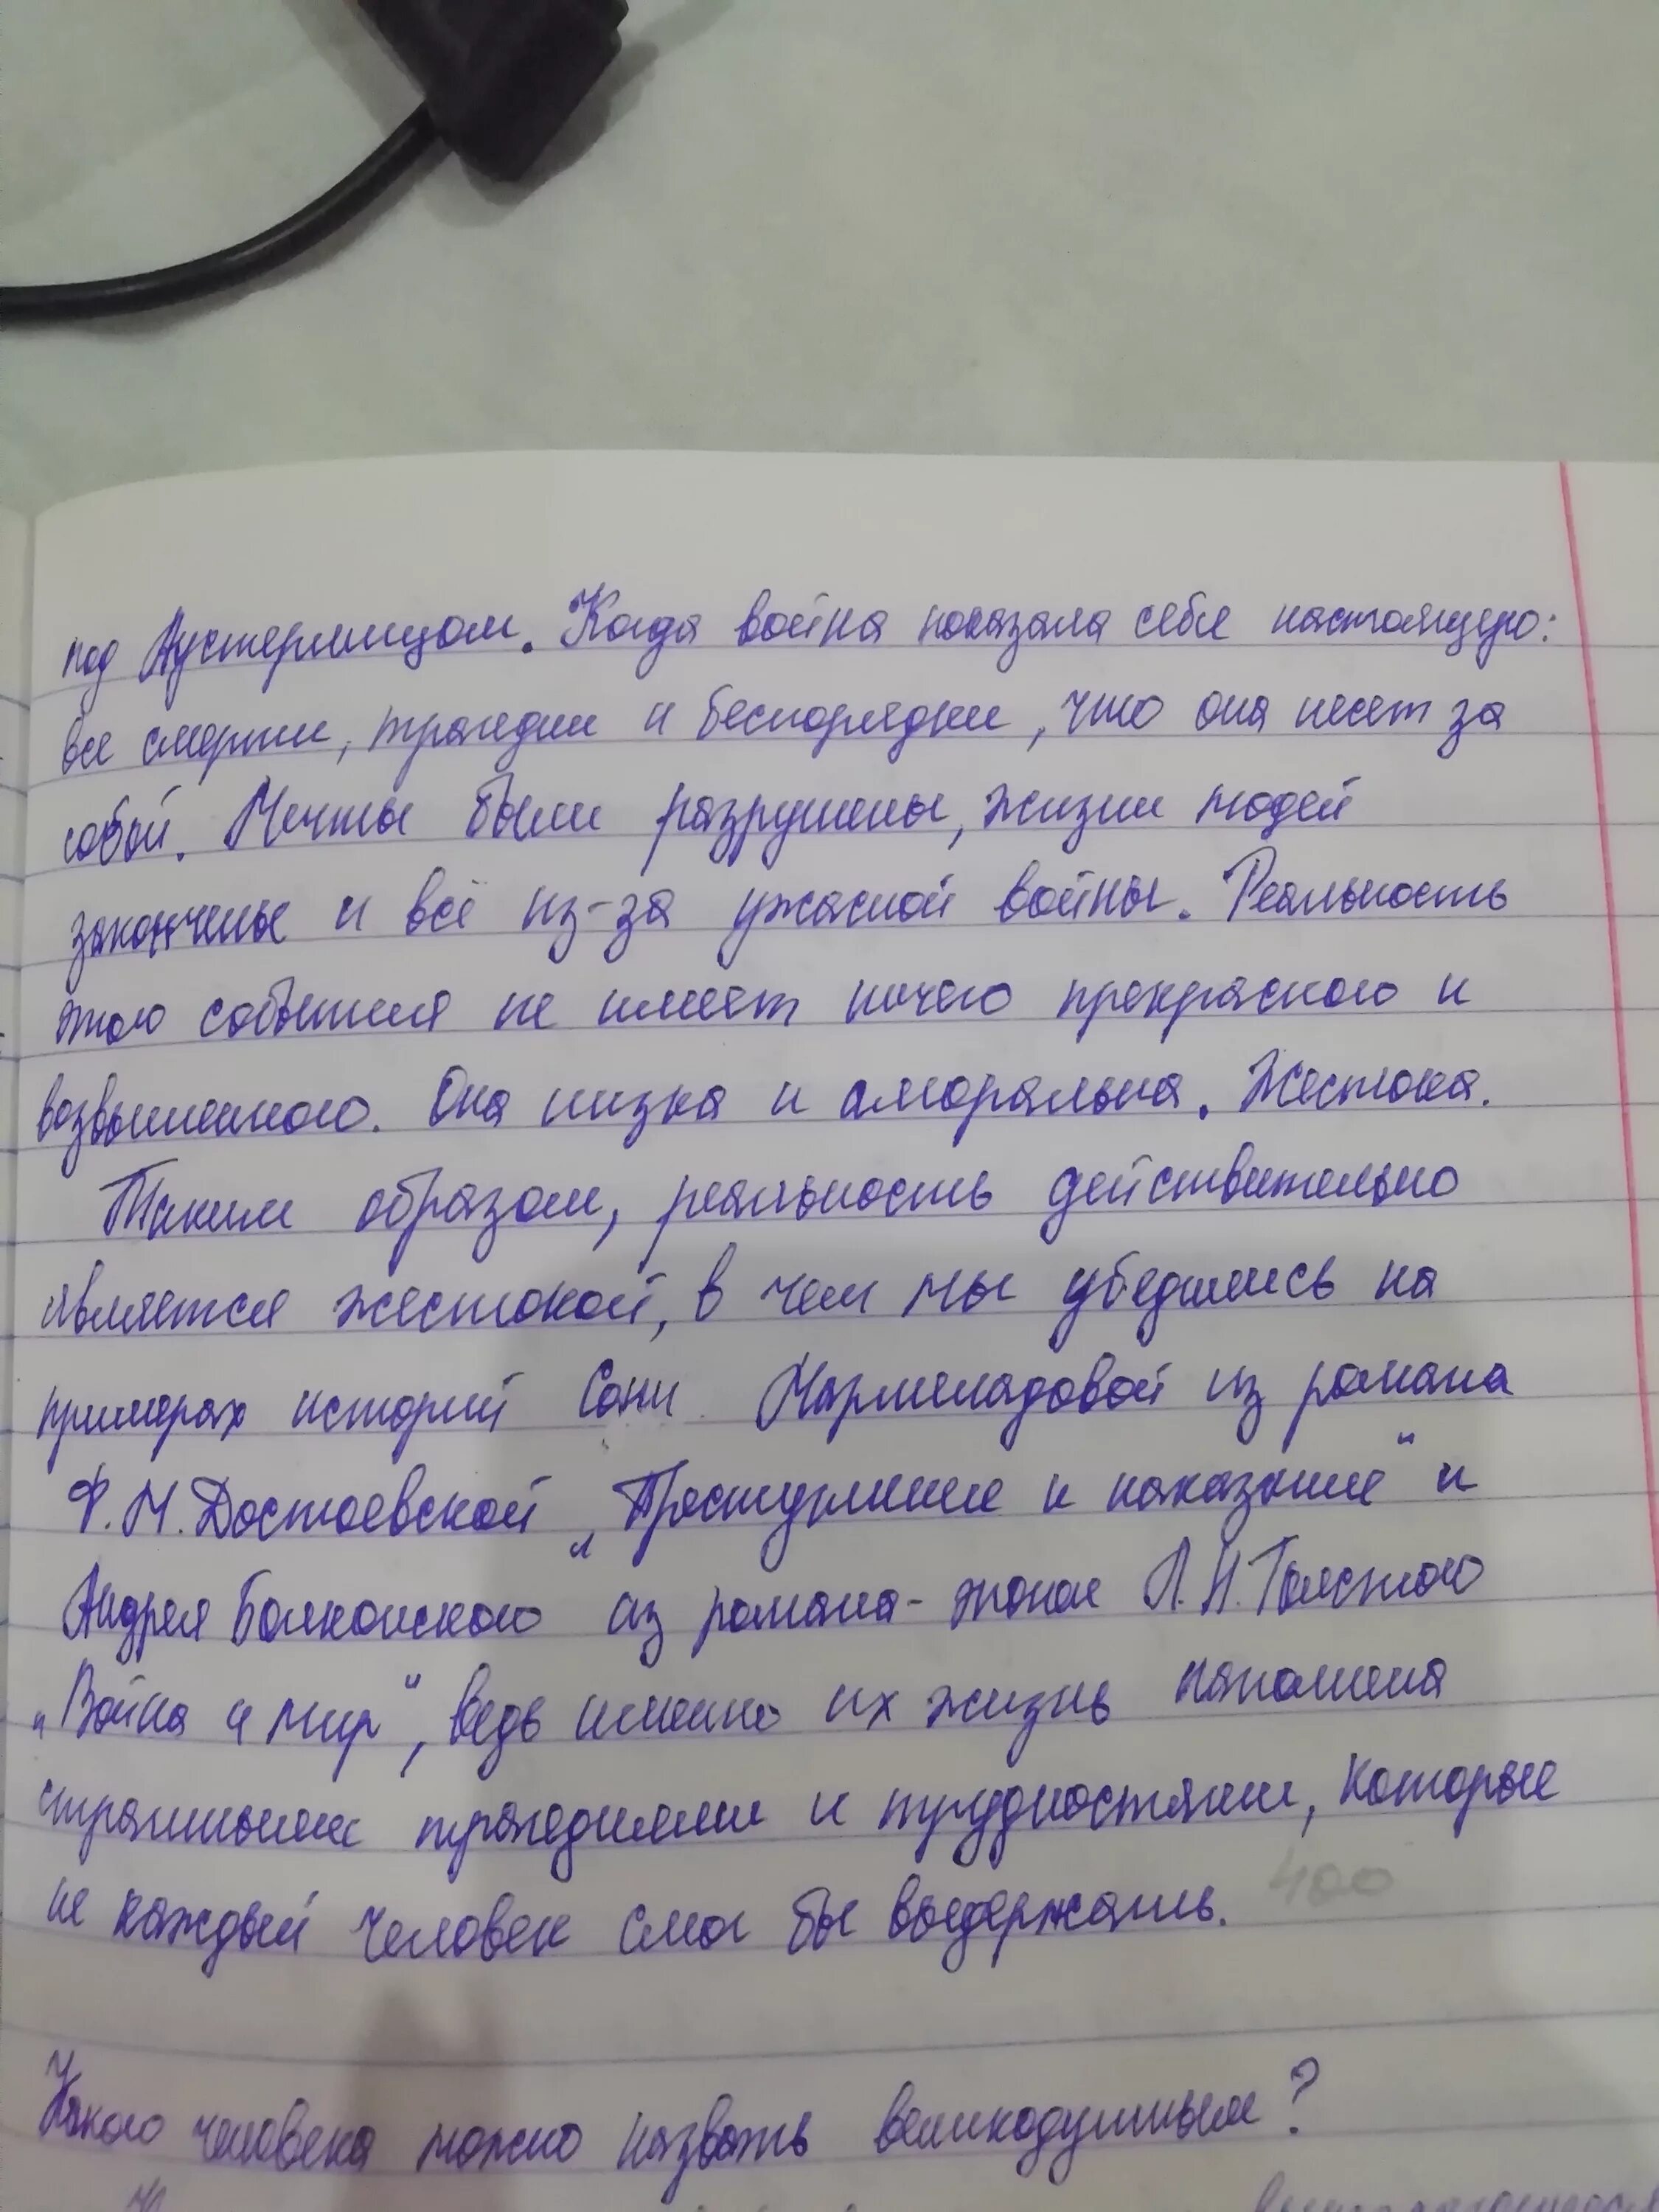 под Аустерлицом. Когда война показала себя настоящую:
все смерти, трагедии и беспорядки, что она несет за
собой. Мечты были разрушены, жизни людей
закончены и всё из-за ужасной войны. Реальность
этого события не имеет ничего прекрасного и
возвышенного. Она низка и аморальна. Жестока.
Таким образом, реальность действительно
является жестокой, в чем мы убедились на
примерах историй Сони Мармеладовой из романа
Ф.М.Достоевской „Преступление и наказание“ и
Андрея Болконского из романа-эпопеи Л.Н.Толстого
„Война и мир“, ведь именно их жизнь наполнена
страшными трагедиями и трудностями, которые
не каждый человек смог бы выдержать. 400
Какого человека можно назвать великодушным?